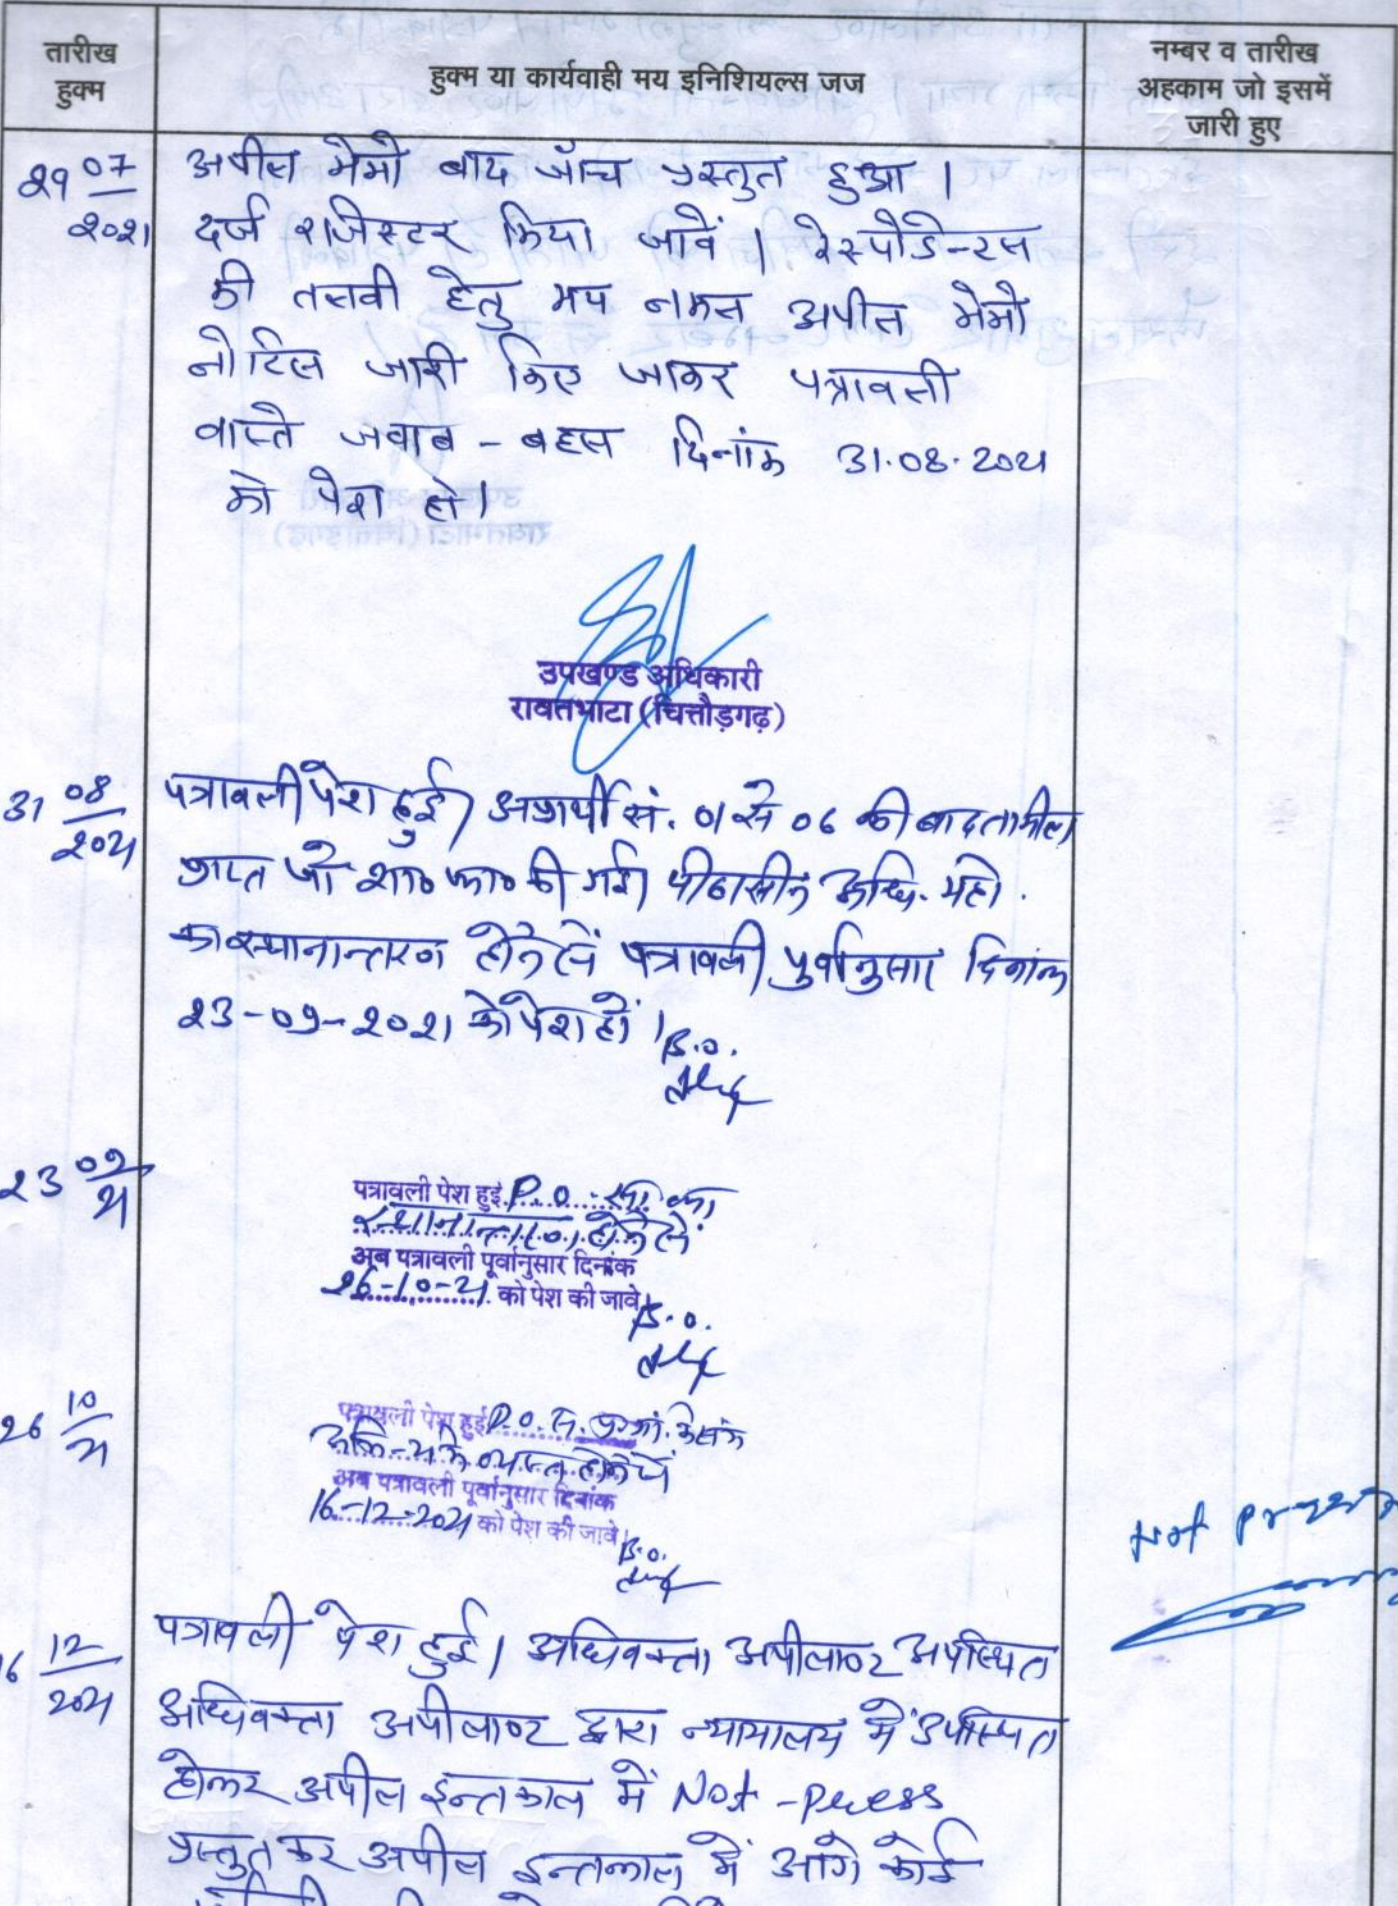 तारीख
हुक्म
हुक्म या कार्यवाही मय इनिशियल्स जज
नम्बर व तारीख
अहकाम जो इसमें
जारी हुए
29 07
2021
अपील मेमो बाद जॉच प्रस्तुत हुआ ।
दर्ज राजिस्टर किया जावें । रेस्पोडेन्टस
की तलवी हेतु मय नकल अपील मेमो
नोटिस जारी किए जाकर पत्रावली
वास्ते जवाब - बहस दिनांक 31.08.2021
को पेश हो।
उपखण्ड अधिकारी
रावतभाटा (चित्तौड़गढ़)
31 08
2021
पत्रावली पेश हुई। अप्रार्थी सं. 01 से 06 की बाद तामील
प्राप्त जो शा० फा० की गई। पीठासीन अधि. महो.
का स्थानान्तरण होने से पत्रावली पुर्वानुसार दिनांक
23-09-2021 को पेश हों।
B.O.
23 09
21
पत्रावली पेश हुई P.O. सा. का
स्थानान्तरण होने से
अब पत्रावली पूर्वानुसार दिनांक
26-10-21 को पेश की जावे।
B.O.
26 10
21
पत्रावली पेश हुई P.O. सा.
व्यस्त होने से
अब पत्रावली पूर्वानुसार दिनांक
16-12-2021 को पेश की जावे।
B.O.
Not press
16 12
2021
पत्रावली पेश हुई। अधिवक्ता अपीलाण्ट उपस्थित
अधिवक्ता अपीलाण्ट द्वारा न्यायालय में उपस्थित
होकर अपील इन्तकाल में Not-Press
प्रस्तुत कर अपील इन्तकाल में आगे कोई